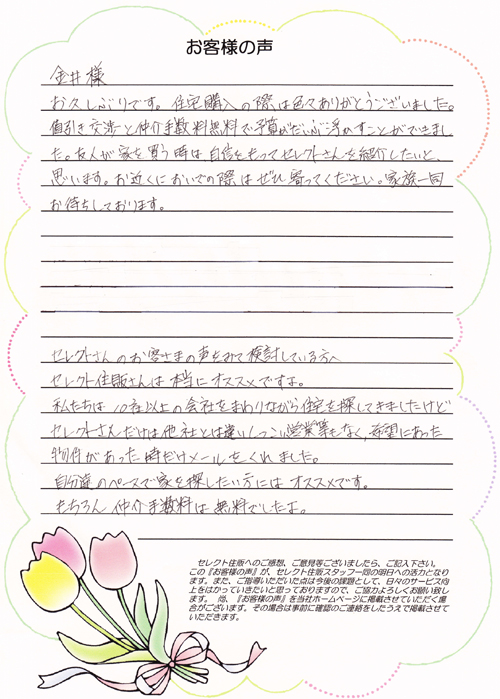 お客様の声
金井様
お久しぶりです。住宅購入の際は色々ありがとうございました。
値引き交渉と仲介手数料無料で予算がだいぶ浮かすことができまし
た。友人が家を買う時は自信をもってセレクトさんを紹介したいと、
思います。お近くにおいでの際はぜひ寄ってください。家族一同
お待ちしております。
セレクトさんのお客さまの声をみて検討している方へ
セレクト住販さんは本当にオススメですよ。
私たちは10社以上の会社をまわりながら住宅を探してきましたけど
セレクトさんだけは他社とは違いしつこい営業等もなく、希望にあった
物件があった時だけメールをくれました。
自分達のペースで家を探したい方にはオススメです。
もちろん仲介手数料は無料でしたよ。
セレクト住販へのご感想、ご意見等ございましたら、ご記入下さい。
この『お客様の声』が、セレクト住販スタッフ一同の明日への活力となり
ます。また、ご指導いただいた点は今後の課題として、日々のサービス向
上をはかっていきたいと思っておりますので、ご協力よろしくお願い致し
ます。 尚、『お客様の声』を当社ホームページに掲載させていただく場
合がございます。その場合は事前に確認のご連絡をしたうえで掲載させて
いただきます。